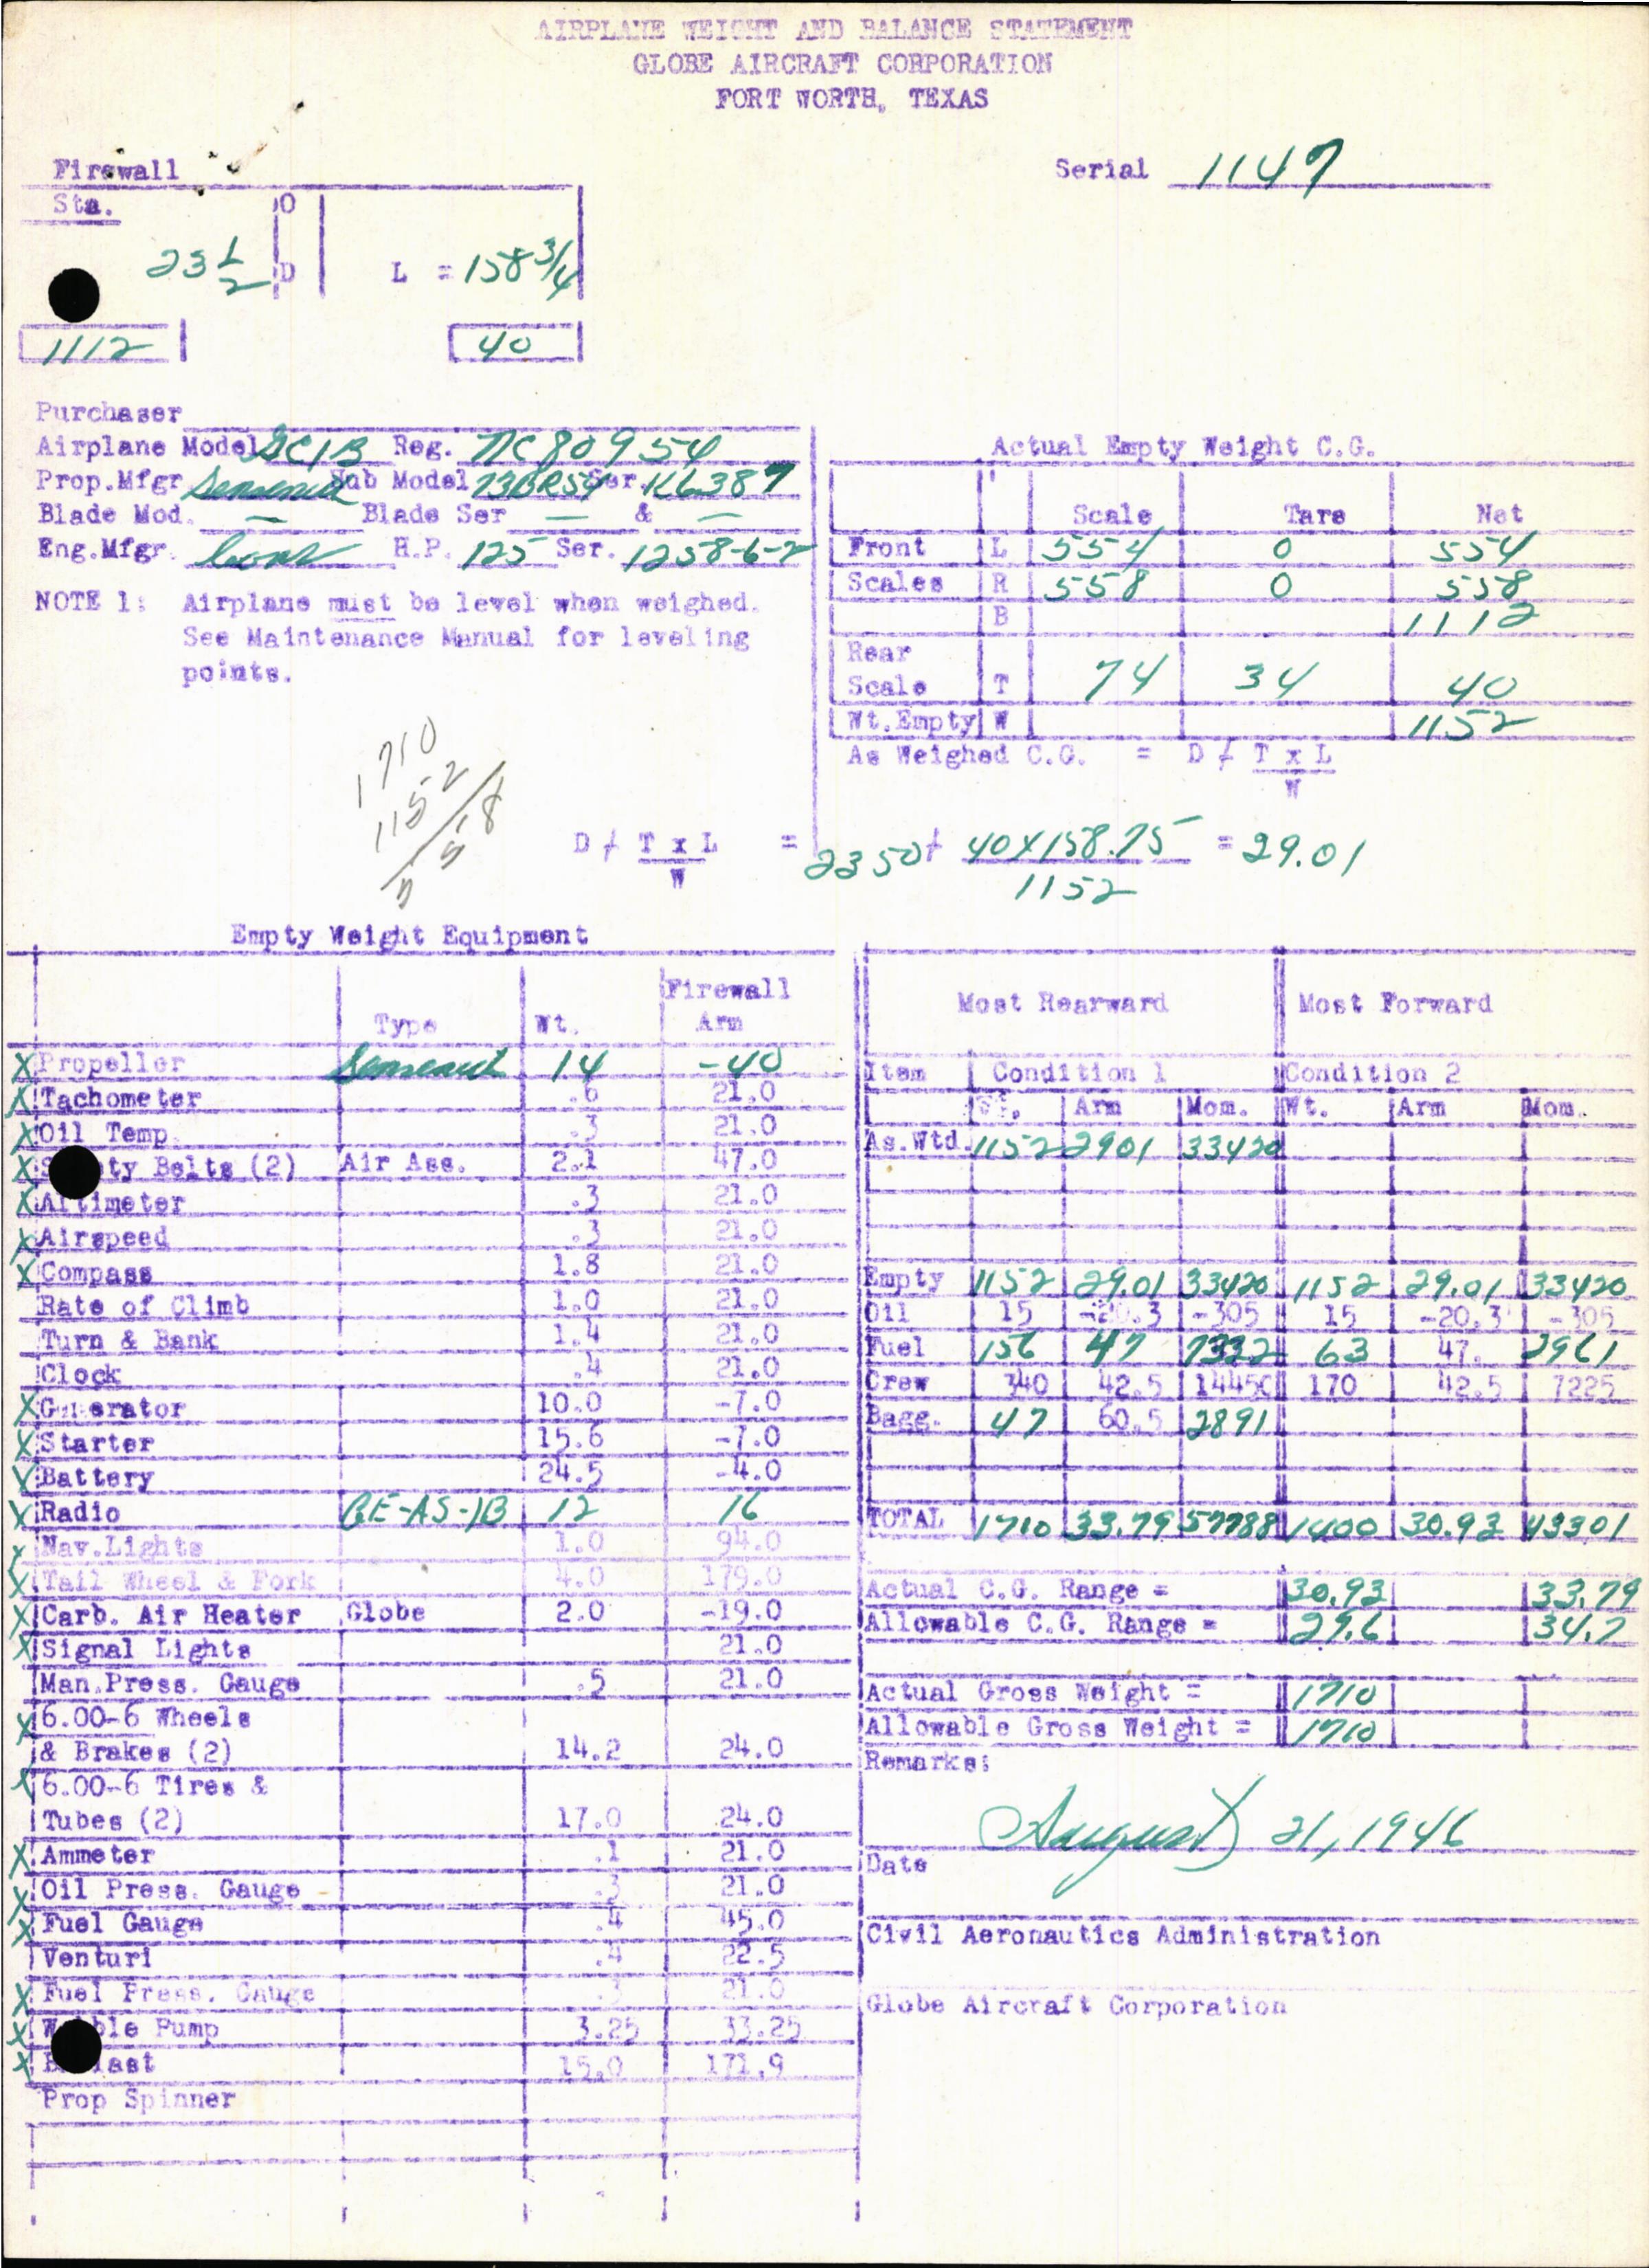 AIRPLANE WEIGHT AND BALANCE STATEMENT
GLOBE AIRCRAFT CORPORATION
FORT WORTH, TEXAS
Firewall
Serial 1147
Sta. O
23 1/2 D L = 158 3/4
1112 40
Purchaser
Airplane Model GC1B Reg. NC80954
Prop.Mfgr Sensenich Hub Model 73BR54 Ser. K6387
Blade Mod. — Blade Ser — & —
Eng.Mfgr. Cont H.P. 125 Ser. 1258-6-2
NOTE 1: Airplane must be level when weighed.
See Maintenance Manual for leveling
points.
Actual Empty Weight C.G.
Scale Tare Net
Front L 554 0 554
Scales R 558 0 558
B 1112
Rear
Scale T 74 34 40
Wt.Empty W 1152
As Weighed C.G. = D + T x L
W
1710
1152
558
D + T x L = 2350 + 40 X 158.75 = 29.01
W 1152
Empty Weight Equipment
Type Wt. Firewall Arm
X Propeller Sensenich 14 -40
X Tachometer .6 21.0
X Oil Temp. .3 21.0
X S ty Belts (2) Air Ass. 2.1 47.0
X Altimeter .3 21.0
X Airspeed .3 21.0
X Compass 1.8 21.0
Rate of Climb 1.0 21.0
Turn & Bank 1.4 21.0
Clock .4 21.0
X Generator 10.0 -7.0
X Starter 15.6 -7.0
X Battery 24.5 -4.0
X Radio GE-AS-1B 12 16
X Nav.Lights 1.0 94.0
X Tail Wheel & Fork 4.0 179.0
X Carb. Air Heater Globe 2.0 -19.0
X Signal Lights 21.0
Man.Press. Gauge .5 21.0
X 6.00-6 Wheels
& Brakes (2) 14.2 24.0
X 6.00-6 Tires &
Tubes (2) 17.0 24.0
X Ammeter .1 21.0
X Oil Press. Gauge .3 21.0
X Fuel Gauge .4 45.0
Venturi .4 22.5
X Fuel Press. Gauge .3 21.0
X W ble Pump 3.25 33.25
X B last 15.0 171.9
Prop Spinner
Most Rearward Most Forward
Item Condition 1 Condition 2
Wt. Arm Mom. Wt. Arm Mom.
As.Wtd. 1152 2901 33420
Empty 1152 29.01 33420 1152 29.01 33420
Oil 15 -20.3 -305 15 -20.3 -305
Fuel 156 47 7332 63 47. 2961
Crew 340 42.5 14450 170 42.5 7225
Bagg. 47 60.5 2891
TOTAL 1710 33.79 57788 1400 30.93 43301
Actual C.G. Range = 30.93 33.79
Allowable C.G. Range = 29.6 34.7
Actual Gross Weight = 1710
Allowable Gross Weight = 1710
Remarks:
August 21, 1946
Date
Civil Aeronautics Administration
Globe Aircraft Corporation